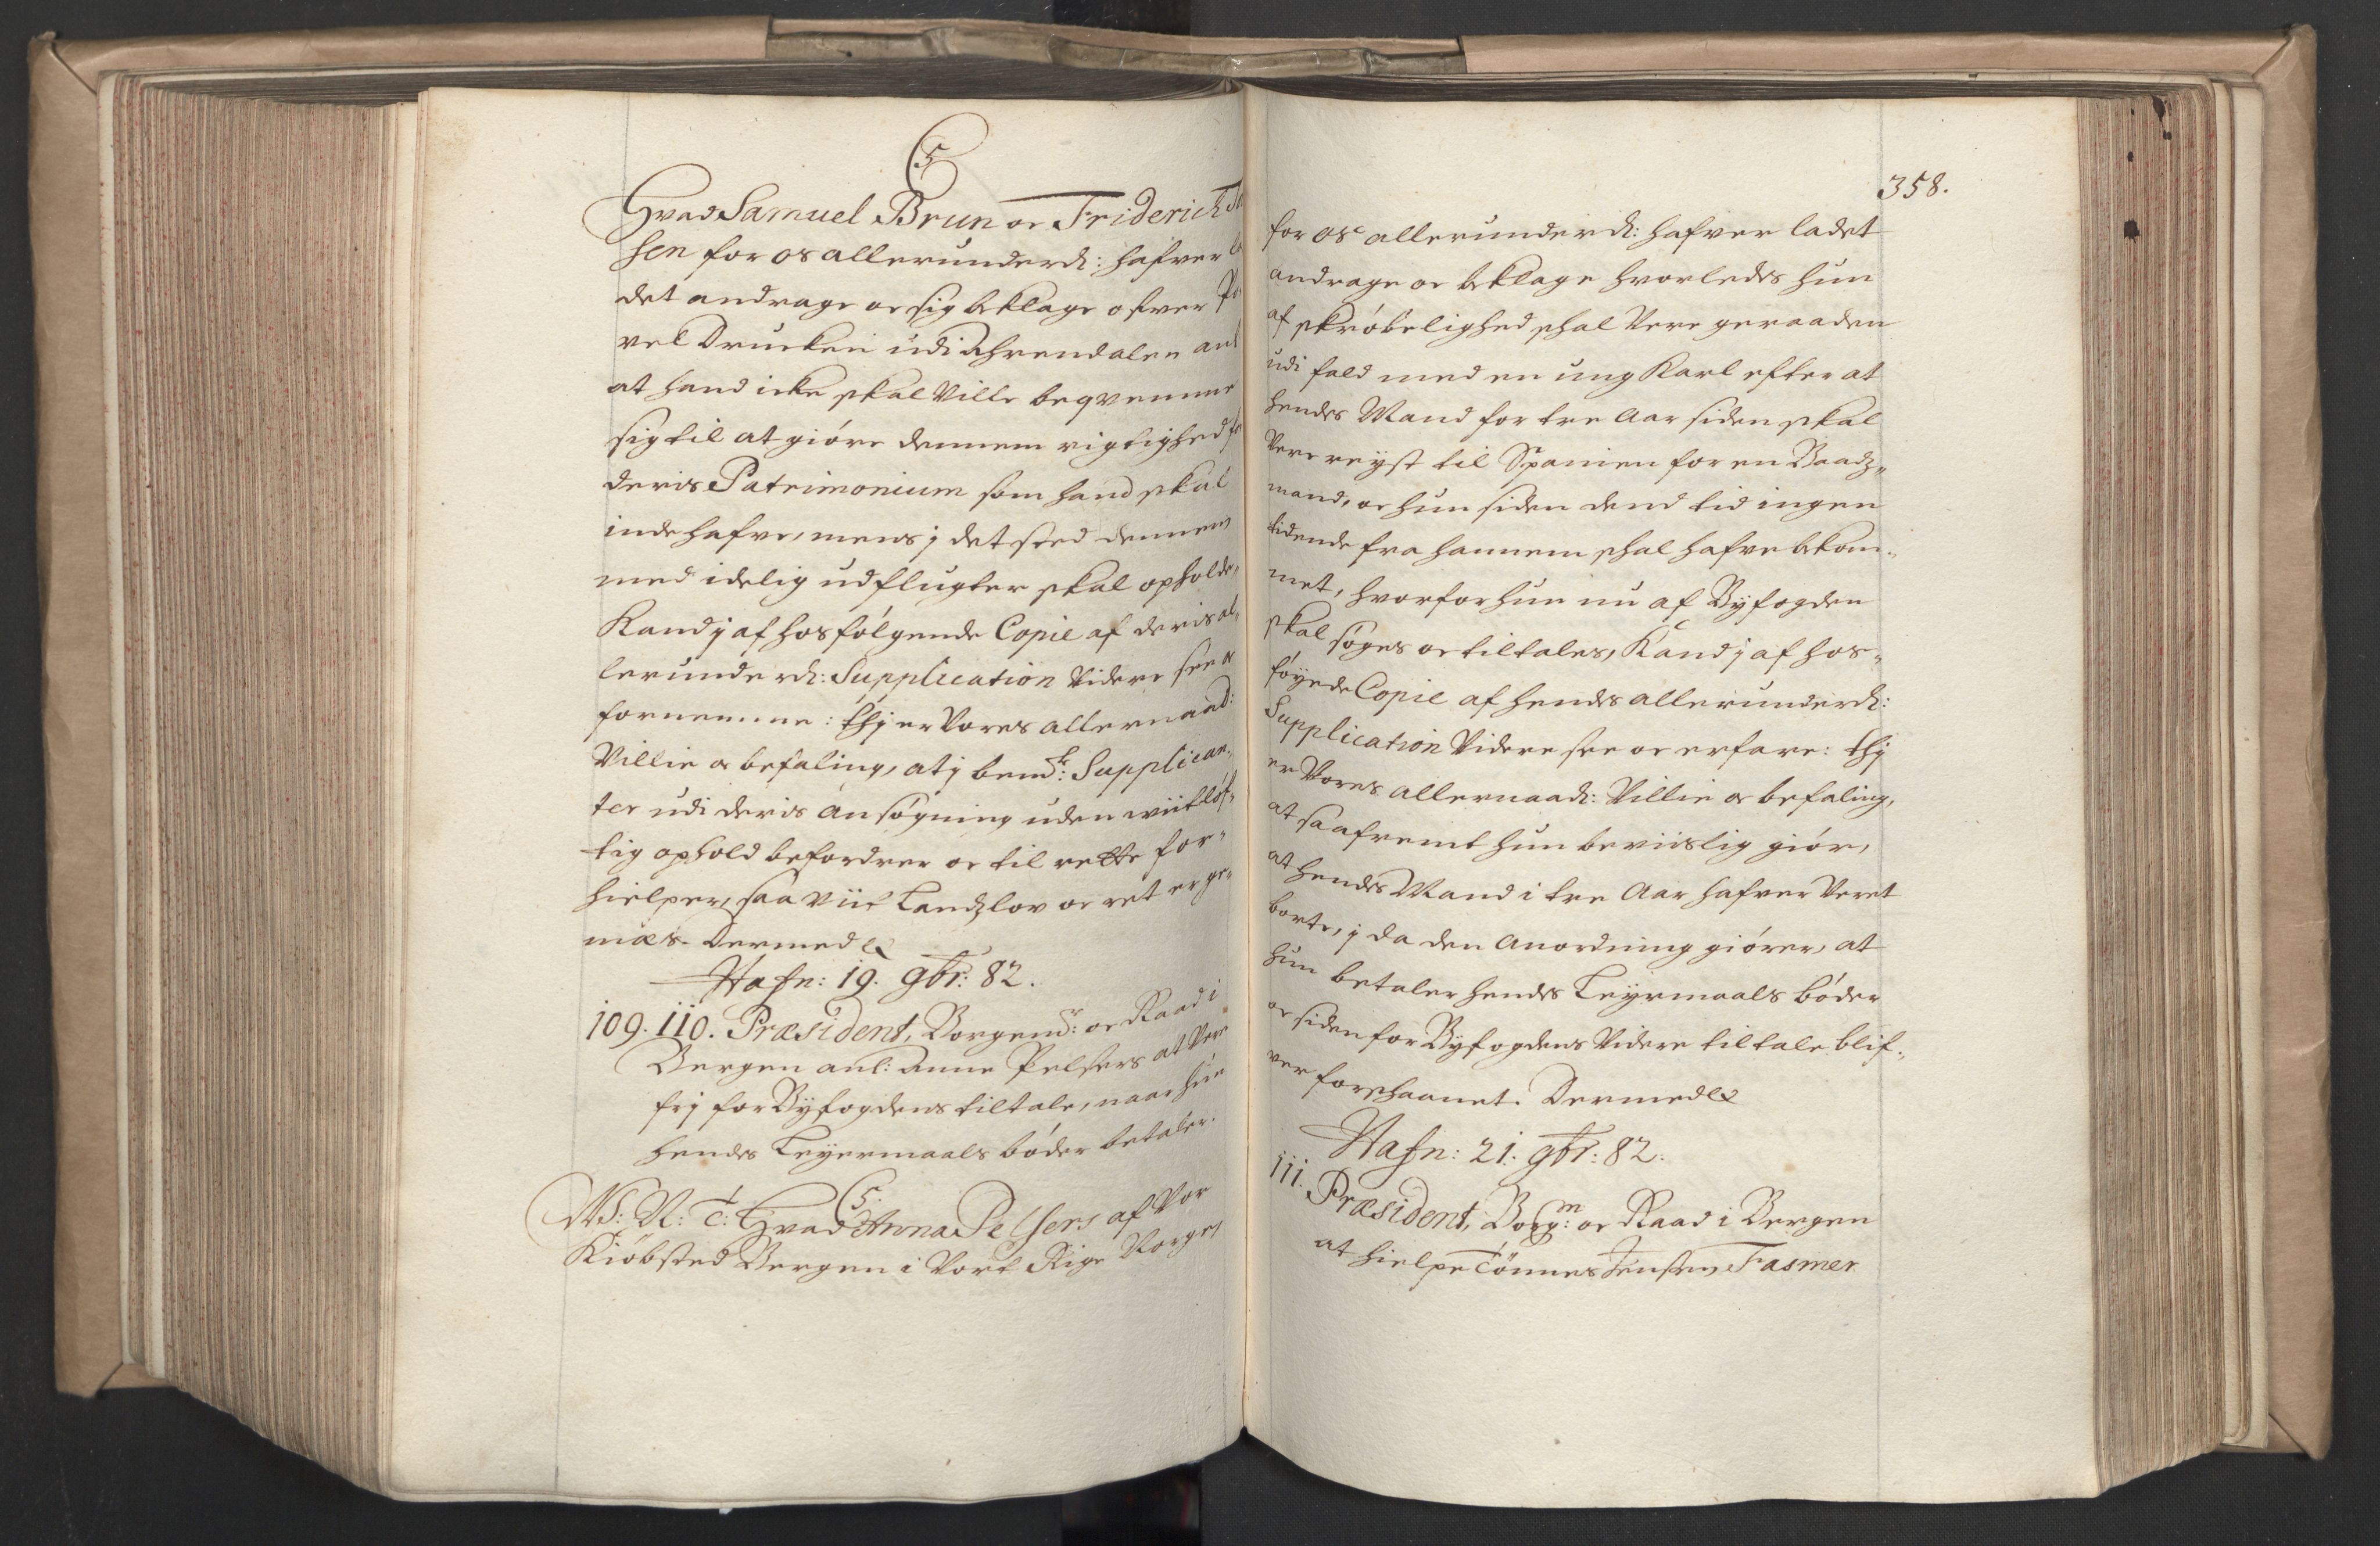 C5
Hvad Samuel Brun oc Friderich
sen for os allerunderdl: hafver
det andrage oc sig beklage ofver
vel Drucken udi Ahrendalen
at hand icke skal Ville beqvemme
sig til at giöre dennem rigtighed
deris Patrimonium som hand skal
indehafve, mens j det sted dennem
med idelig udflugter skal opholde,
Kand j af hosfölgende Copie af deris al„
lerunderdl: Supplication Videre see oc
fornemme: thj er Vores allernaad:
Villie oc befaling, at j bemte: Supplican„
ter udi deris Ansögning uden wiitlöf„
tig ophold befordrer oc til rette for„
hielper, saa viit Landzlov oc ret er ge„
mæs. Dermed &
Hafn: 19. 9br: 82.
109. 110. Præsident, Borgemr: oc Raad i
Bergen anl: Anne Pelsers at Vere
frj for Byfogdens tiltale, naar hun
hendes Leyermaals böder betaler.
C5.
W: N: T: Hvad Anna Pelsers af Vor
Kiöbsted Bergen i Vort Rige Norge,
358.
for os allerunderdl: hafver ladet
andrage oc beklage hvorledes hun
af skröbelighed skal Vere geraaden
udi fald med en ung Karl efter at
hendes Mand for tre Aar siden skal
Vere reyst til Spanien for en Baadz„
mand, oc hun siden dend tid ingen
tidende fra hannem skal hafve bekom„
met, hvorfor hun nu af Byfogden
skal söges oc tiltales, Kand j af hos„
föyede Copie af hendes allerunderdl:
Supplication Videre see oc erfare: thj
er Vores allernaadl: Villie oc befaling,
at saafremt hun beviislig giör,
at hendes Mand i tre Aar hafver Veret
borte, j da den Anordning giörer, at
hun betaler hendes Leyermaals böder
oc siden for Byfogdens Videre tiltale blif„
ver forskaanet. Dermed &
Hafn: 21. 9br: 82.
111. Præsident, Borgm: oc Raad i Bergen
at hielpe Tönnes Jensen Fasmer